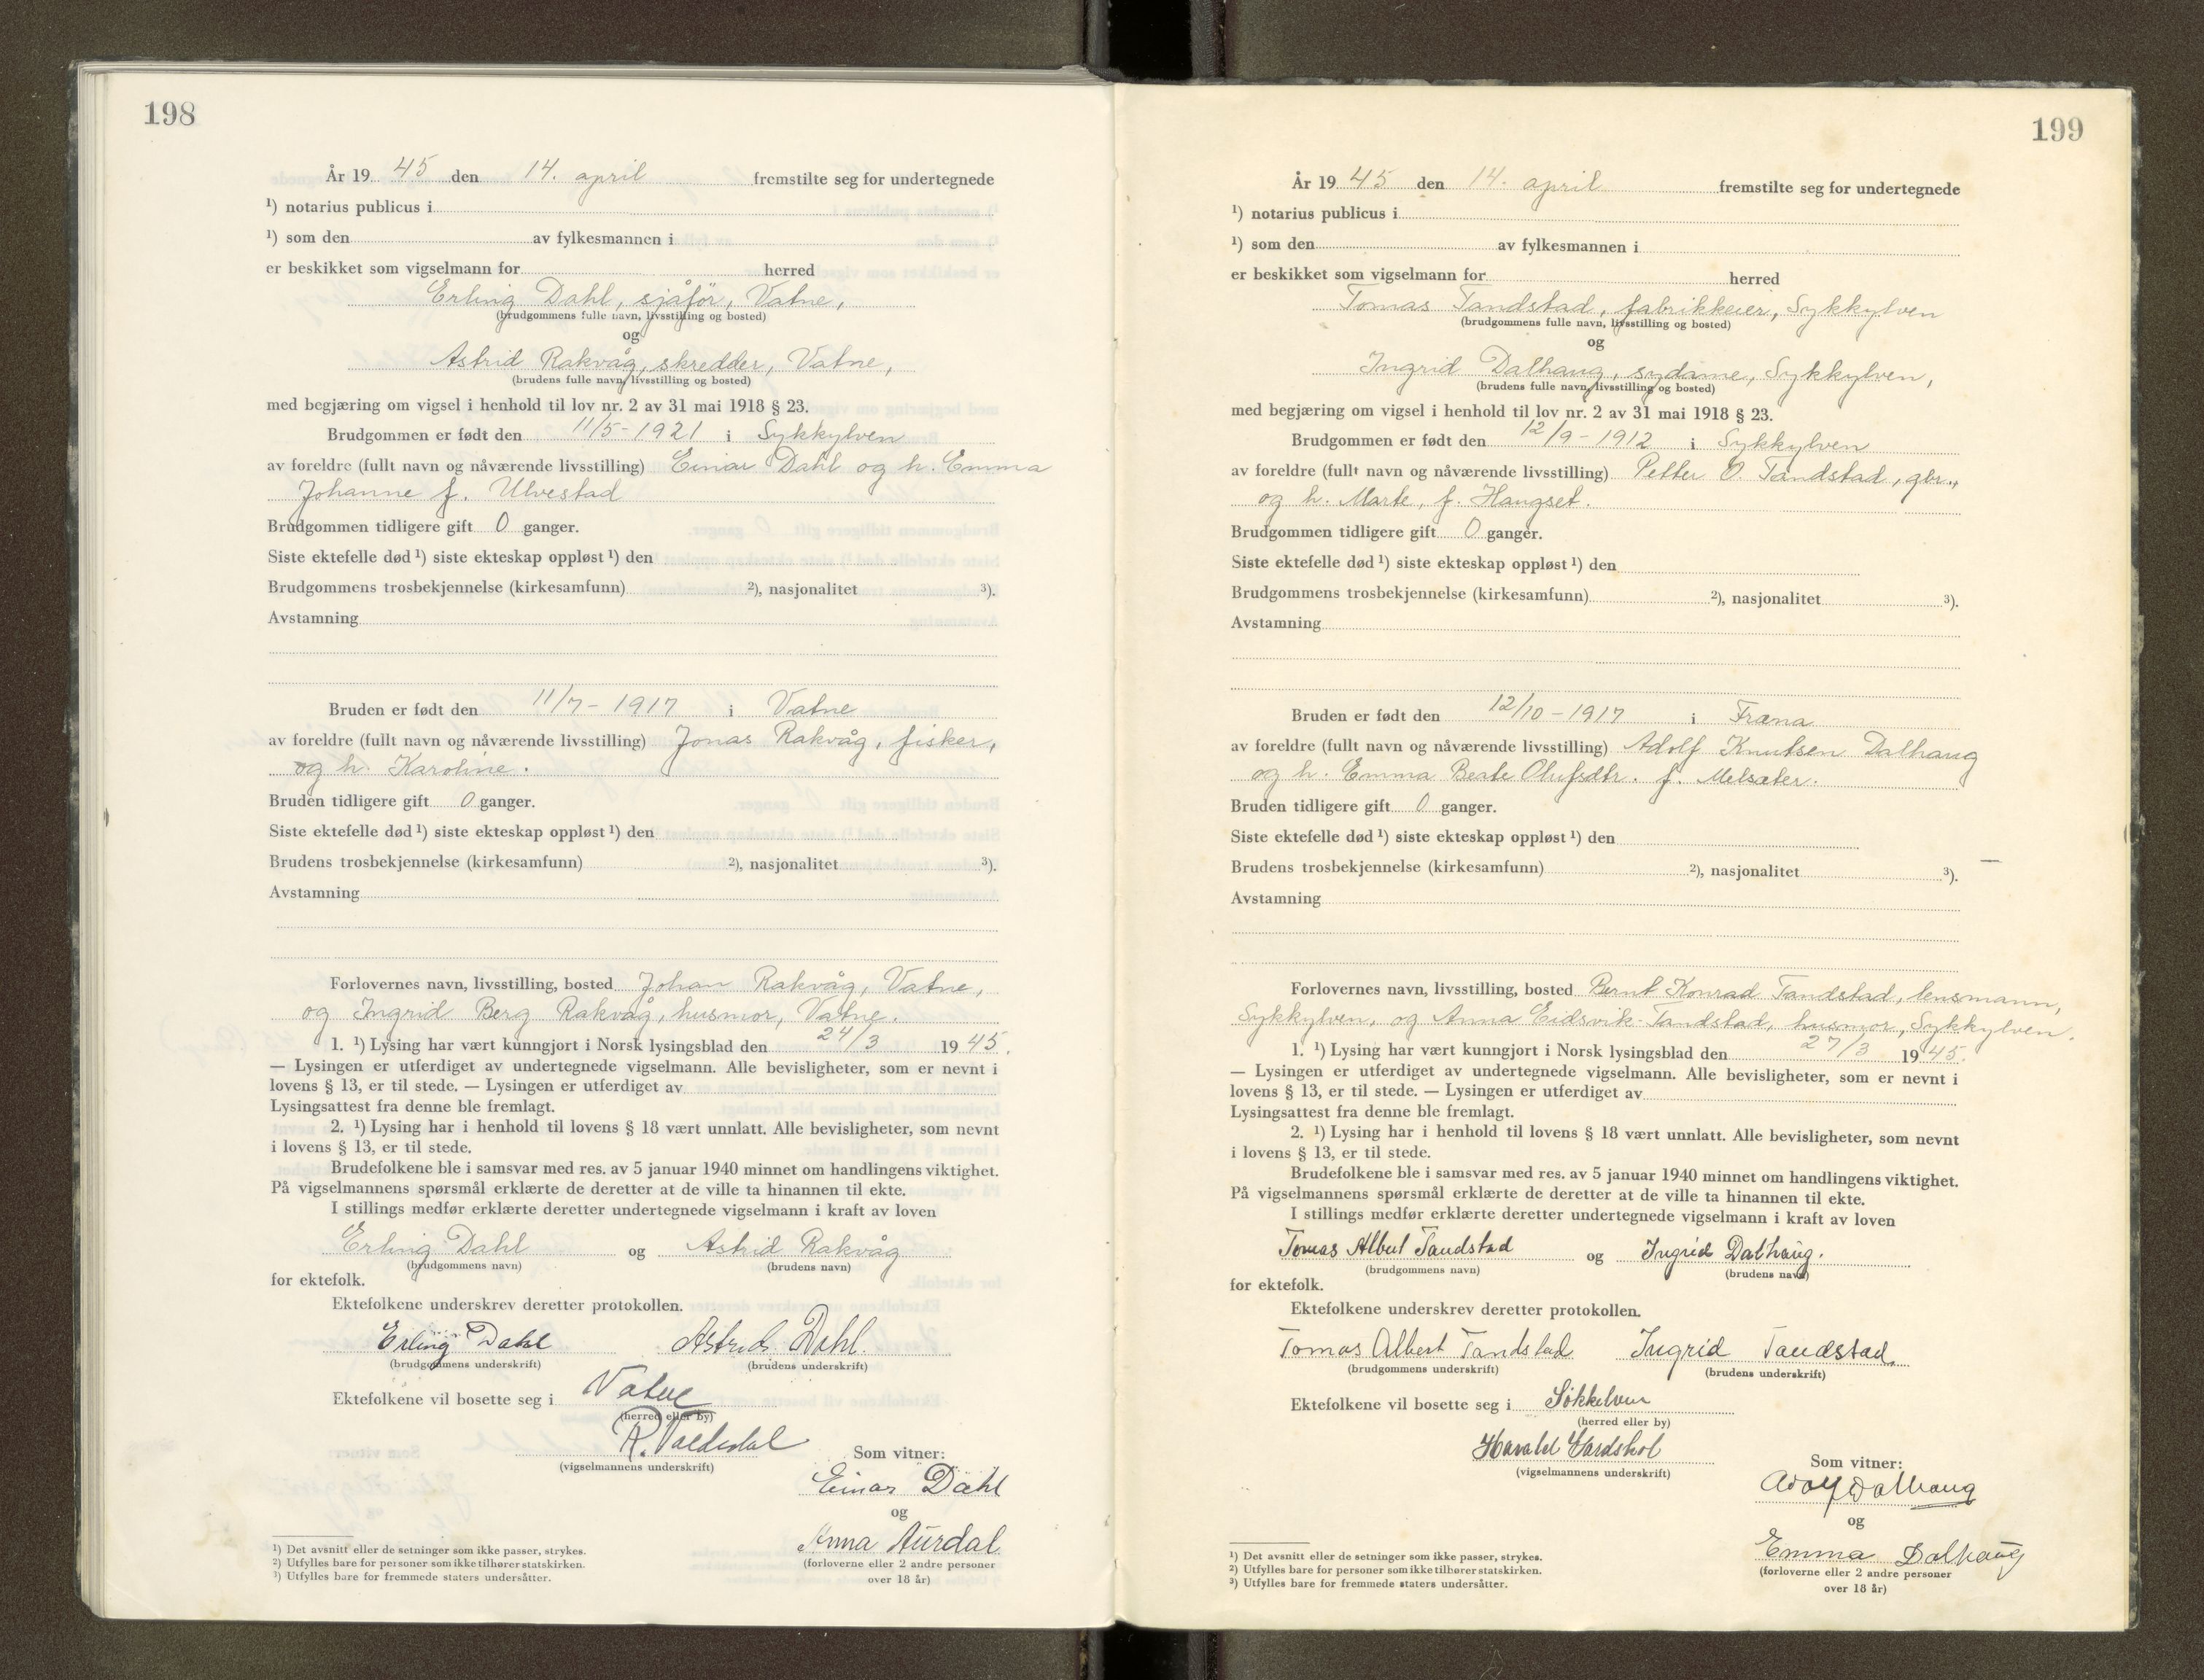 198
År 19 45 den 14. april fremstilte seg for undertegnede
¹) notarius publicus i
¹) som den av fylkesmannen i
er beskikket som vigselmann for herred
Erling Dahl, sjåfør, Vatne,
(brudgommens fulle navn, livsstilling og bosted)
og
Astrid Rakvåg, skredder, Vatne,
(brudens fulle navn, livsstilling og bosted)
med begjæring om vigsel i henhold til lov nr. 2 av 31 mai 1918 § 23.
Brudgommen er født den 11/5-1921 i Sykkylven
av foreldre (fullt navn og nåværende livsstilling) Einar Dahl og h. Emma
Johanne f. Ulvestad
Brudgommen tidligere gift 0 ganger.
Siste ektefelle død ¹) siste ekteskap oppløst ¹) den
Brudgommens trosbekjennelse (kirkesamfunn) ²), nasjonalitet ³).
Avstamning
Bruden er født den 11/7-1917 i Vatne
av foreldre (fullt navn og nåværende livsstilling) Jonas Rakvåg, fisker,
og h. Karoline.
Bruden tidligere gift 0 ganger.
Siste ektefelle død ¹) siste ekteskap oppløst ¹) den
Brudens trosbekjennelse (kirkesamfunn) ²), nasjonalitet ³).
Avstamning
Forlovernes navn, livsstilling, bosted Johan Rakvåg, Vatne,
og Ingrid Berg Rakvåg, husmor, Vatne.
1. ¹) Lysing har vært kunngjort i Norsk lysingsblad den 24/3 1945.
— Lysingen er utferdiget av undertegnede vigselmann. Alle bevisligheter, som er nevnt i
lovens § 13, er til stede. — Lysingen er utferdiget av
Lysingsattest fra denne ble fremlagt.
2. ¹) Lysing har i henhold til lovens § 18 vært unnlatt. Alle bevisligheter, som nevnt
i lovens § 13, er til stede.
Brudefolkene ble i samsvar med res. av 5 januar 1940 minnet om handlingens viktighet.
På vigselmannens spørsmål erklærte de deretter at de ville ta hinannen til ekte.
I stillings medfør erklærte deretter undertegnede vigselmann i kraft av loven
Erling Dahl og Astrid Rakvåg
(brudgommens navn) (brudens navn)
for ektefolk.
Ektefolkene underskrev deretter protokollen.
Erling Dahl Astrid Dahl.
(brudgommens underskrift) (brudens underskrift)
Ektefolkene vil bosette seg i Vatne
(herred eller by)
R.
(vigselmannens underskrift)
Som vitner:
Einar Dahl
og
Anna Aurdal
(forloverne eller 2 andre personer
over 18 år)
¹) Det avsnitt eller de setninger som ikke passer, strykes.
²) Utfylles bare for personer som ikke tilhører statskirken.
³) Utfylles bare for fremmede staters undersåtter.
199
År 19 45 den 14. april fremstilte seg for undertegnede
¹) notarius publicus i
¹) som den av fylkesmannen i
er beskikket som vigselmann for herred
Tomas Tandstad, fabrikkeier, Sykkylven
(brudgommens fulle navn, livsstilling og bosted)
og
Ingrid Dalhaug, sydame, Sykkylven,
(brudens fulle navn, livsstilling og bosted)
med begjæring om vigsel i henhold til lov nr. 2 av 31 mai 1918 § 23.
Brudgommen er født den 12/9-1912 i Sykkylven
av foreldre (fullt navn og nåværende livsstilling) Petter O. Tandstad, gbr.,
og h. Marte, f. Haugset.
Brudgommen tidligere gift 0 ganger.
Siste ektefelle død ¹) siste ekteskap oppløst ¹) den
Brudgommens trosbekjennelse (kirkesamfunn) ²), nasjonalitet ³).
Avstamning
Bruden er født den 12/10-1917 i Fræna
av foreldre (fullt navn og nåværende livsstilling) Adolf Knutsen Dalhaug
og h. Emma Beate Olufsdtr. f. Melsæter.
Bruden tidligere gift 0 ganger.
Siste ektefelle død ¹) siste ekteskap oppløst ¹) den
Brudens trosbekjennelse (kirkesamfunn) ²), nasjonalitet ³).
Avstamning
Forlovernes navn, livsstilling, bosted Bernt Konrad Tandstad, lensmann,
Sykkylven, og Anna Eidsvik-Tandstad, husmor, Sykkylven.
1. ¹) Lysing har vært kunngjort i Norsk lysingsblad den 27/3 1945.
— Lysingen er utferdiget av undertegnede vigselmann. Alle bevisligheter, som er nevnt i
lovens § 13, er til stede. — Lysingen er utferdiget av
Lysingsattest fra denne ble fremlagt.
2. ¹) Lysing har i henhold til lovens § 18 vært unnlatt. Alle bevisligheter, som nevnt
i lovens § 13, er til stede.
Brudefolkene ble i samsvar med res. av 5 januar 1940 minnet om handlingens viktighet.
På vigselmannens spørsmål erklærte de deretter at de ville ta hinannen til ekte.
I stillings medfør erklærte deretter undertegnede vigselmann i kraft av loven
Tomas Albert Tandstad og Ingrid Dalhaug.
(brudgommens navn) (brudens navn)
for ektefolk.
Ektefolkene underskrev deretter protokollen.
Tomas Albert Tandstad Ingrid Tandstad.
(brudgommens underskrift) (brudens underskrift)
Ektefolkene vil bosette seg i Søkkelven
(herred eller by)
Harald
(vigselmannens underskrift)
Som vitner:
Adolf Dalhaug
og
Emma Dalhaug
(forloverne eller 2 andre personer
over 18 år)
¹) Det avsnitt eller de setninger som ikke passer, strykes.
²) Utfylles bare for personer som ikke tilhører statskirken.
³) Utfylles bare for fremmede staters undersåtter.